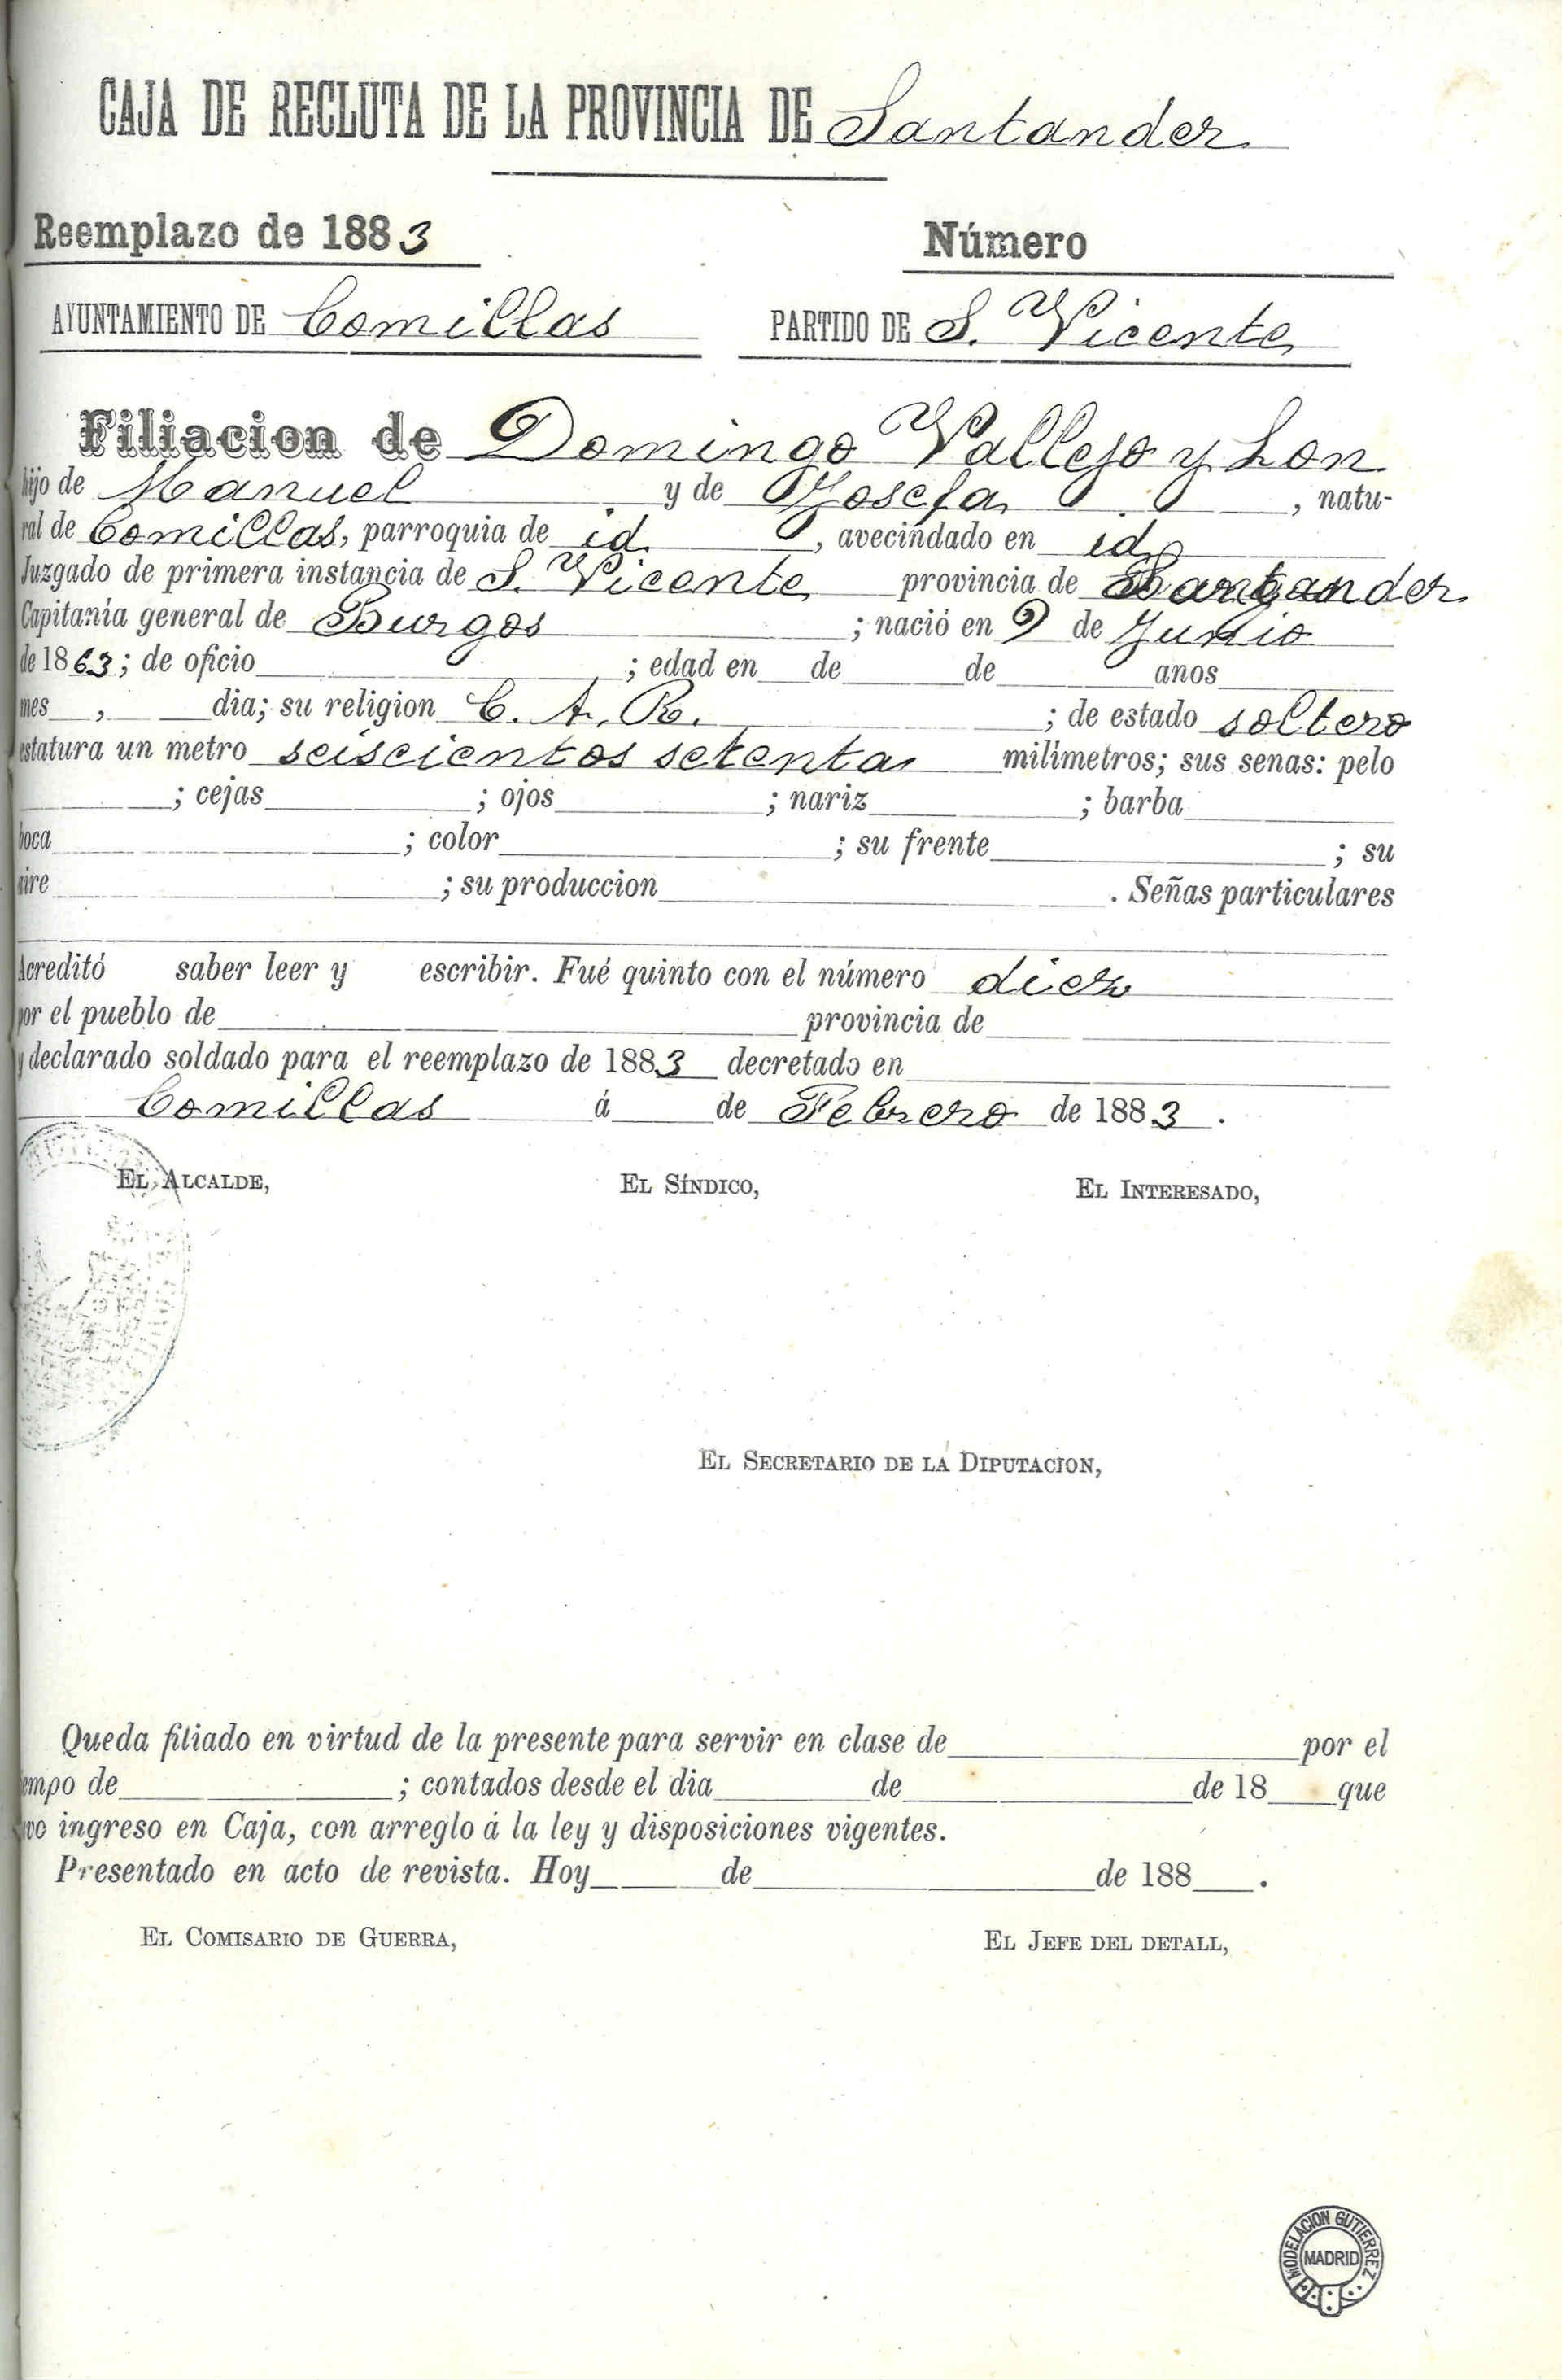 CAJA DE RECLUTA DE LA PROVINCIA DE Santander
Reemplazo de 1883 Número
AYUNTAMIENTO DE Comillas PARTIDO DE S. Vicente
Filiacion de Domingo Vallejo y Lon
hijo de Manuel y de Josefa, natu-
ral de Comillas, parroquia de id, avecindado en id
Juzgado de primera instancia de S. Vicente provincia de Santander
Capitania general de Burgos; nació en 9 de Junio
de 1863; de oficio ; edad en de de anos
mes , dia; su religion C. A. R. ; de estado soltero
estatura un metro seiscientos setenta milimetros; sus senas: pelo
; cejas ; ojos ; nariz ; barba
boca ; color ; su frente ; su
aire ; su produccion . Señas particulares
Acreditó saber leer y escribir. Fué quinto con el número diez
por el pueblo de provincia de
y declarado soldado para el reemplazo de 1883 decretado en
Comillas á de Febrero de 1883.
EL ALCALDE, EL SÍNDICO, EL INTERESADO,
EL SECRETARIO DE LA DIPUTACION,
Queda filiado en virtud de la presente para servir en clase de por el
empo de ; contados desde el dia de de 18 que
vo ingreso en Caja, con arreglo á la ley y disposiciones vigentes.
Presentado en acto de revista. Hoy de de 188 .
EL COMISARIO DE GUERRA, EL JEFE DEL DETALL,
MODELACION GUTIERREZ
MADRID